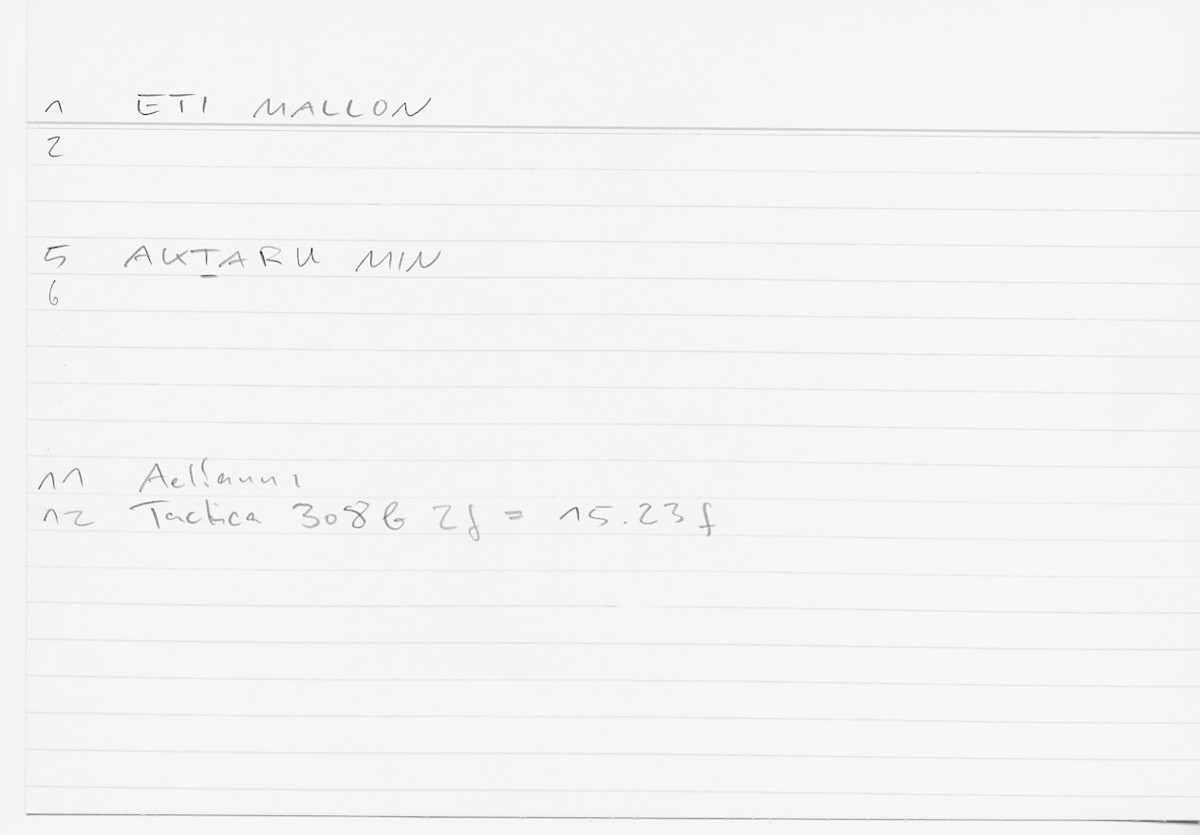 1 ETI MALLON
2
5 AKTARU MIN
6
11 Aelianni
12 Tactica 308b 2f = 15.23f